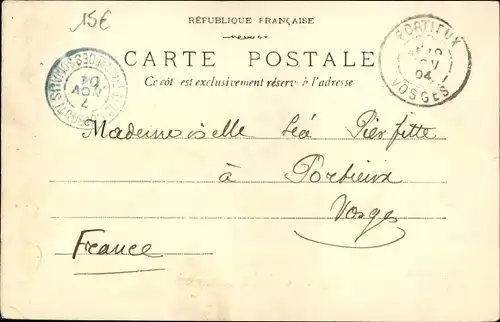 15€
RÉPUBLIQUE FRANÇAISE
CARTE POSTALE
Ce côté est exclusivement réservé à l'adresse
PORTIEUX
04
VOSGES
7
NOV
04
Mademoiselle Léa Pierfitte
à Portieux
Vosges
France